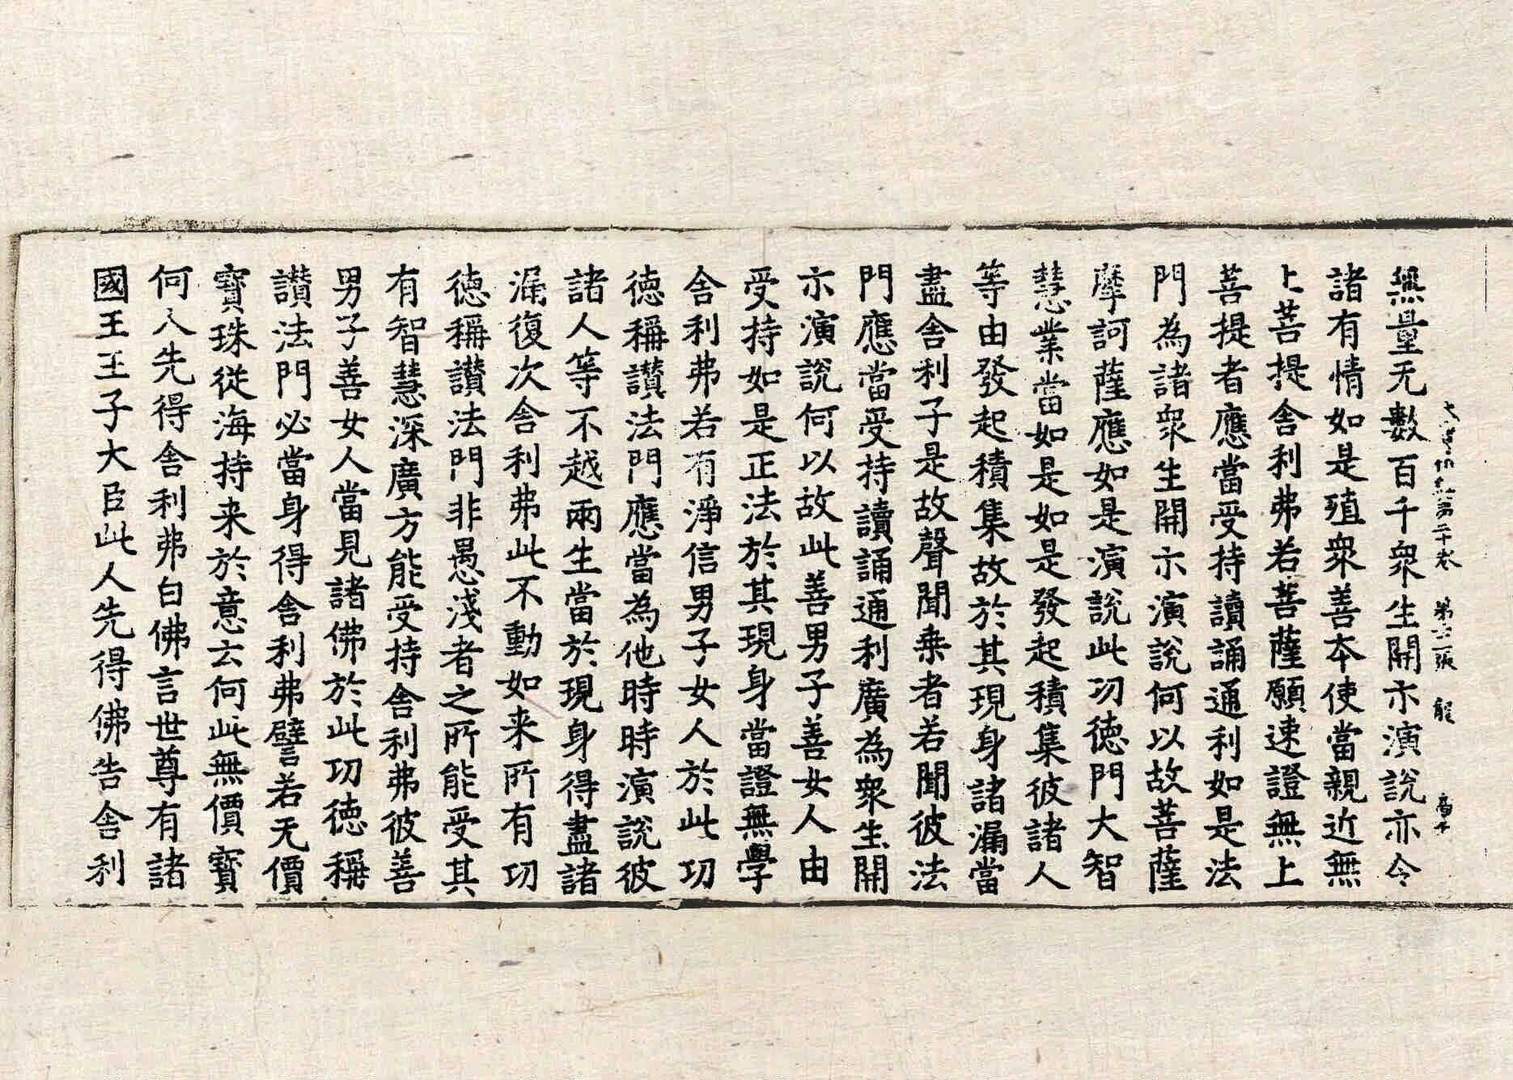 大寶積經第二十卷　第六張　龍
無量无數百千衆生開示演說亦令
諸有情如是殖衆善本使當親近無
上菩提舍利弗若菩薩願速證無上
菩提者應當受持讀誦通利如是法
門為諸衆生開示演說何以故菩薩
摩訶薩應如是演說此功德門大智
慧業當如是如是發起積集彼諸人
等由發起積集故於其現身諸漏當
盡舍利子是故聲聞乗者若聞彼法
門應當受持讀誦通利廣為衆生開
示演說何以故此善男子善女人由
受持如是正法於其現身當證無學
舍利弗若有淨信男子女人於此功
德稱讃法門應當為他時時演說彼
諸人等不越兩生當於現身得盡諸
漏復次舍利弗此不動如来所有功
德稱讃法門非愚淺者之所能受其
有智慧深廣方能受持舍利弗彼善
男子善女人當見諸佛於此功德稱
讃法門必當身得舍利弗譬若无價
寶珠從海持来於意云何此無價寶
何人先得舍利弗白佛言世尊有諸
國王王子大臣此人先得佛告舍利